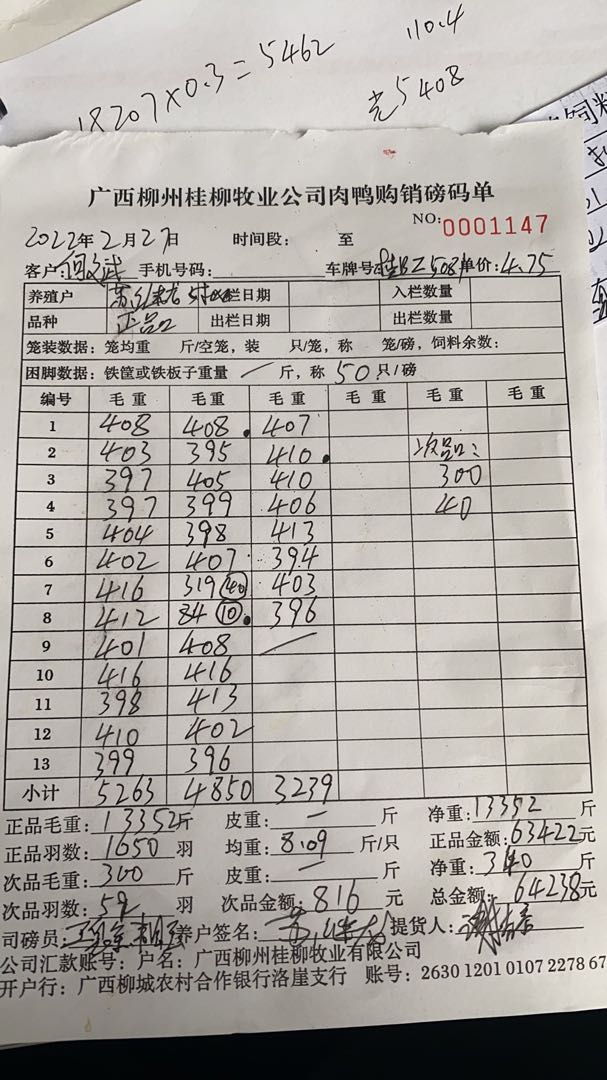 18207×0.3=5462
110.4
5408
广西柳州桂柳牧业公司肉鸭购销磅码单
NO:0001147
2022年2月27日 时间段: 至
客户: 手机号码: 车牌号: 单价:4.75
养殖户 栏日期 入栏数量
品种 正品 出栏日期 出栏数量
笼装数据:笼均重 斤/空笼,装 只/笼,称 笼/磅,饲料余数:
困脚数据:铁筐或铁板子重量 / 斤,称 50 只/磅
编号 毛重 毛重 毛重 毛重 毛重 毛重
1 408 408. 407
2 403 395 410. 次品:
3 397 405 410 300
4 397 399 406 40
5 404 398 413
6 402 407 394
7 416 319 40 403
8 412 84 10. 396
9 401 408 /
10 416 416
11 398 413
12 410 402
13 399 396
小计 5263 4850 3239
正品毛重:13352斤 皮重: — 斤 净重:13352 斤
正品羽数:1650 羽 均重:8.09 斤/只 正品金额:63422元
次品毛重:300 斤 皮重: — 斤 净重:340 斤
次品羽数: 羽 次品金额:816 元 总金额:64238元
司磅员: 养户签名: 提货人:
公司汇款账号:户名:广西柳州桂柳牧业有限公司
开户行:广西柳城农村合作银行洛崖支行 账号:2630 1201 0107 2278 67